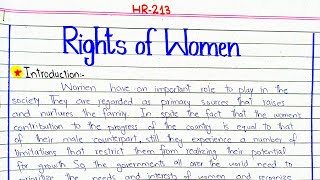 HR-213
Rights of Women
Introduction:-
Women have an important role to play in the
society. They are regarded as primary sources that raises
and nurtures the family. In spite the fact that the women's
contribution to the progress of the country is equal to that
of their male counterpart, still they experience a number of
limitations that restrict them from realizing their potential
for growth. So, the governments all over the world need to
prioritize the needs and interests of women and recognize